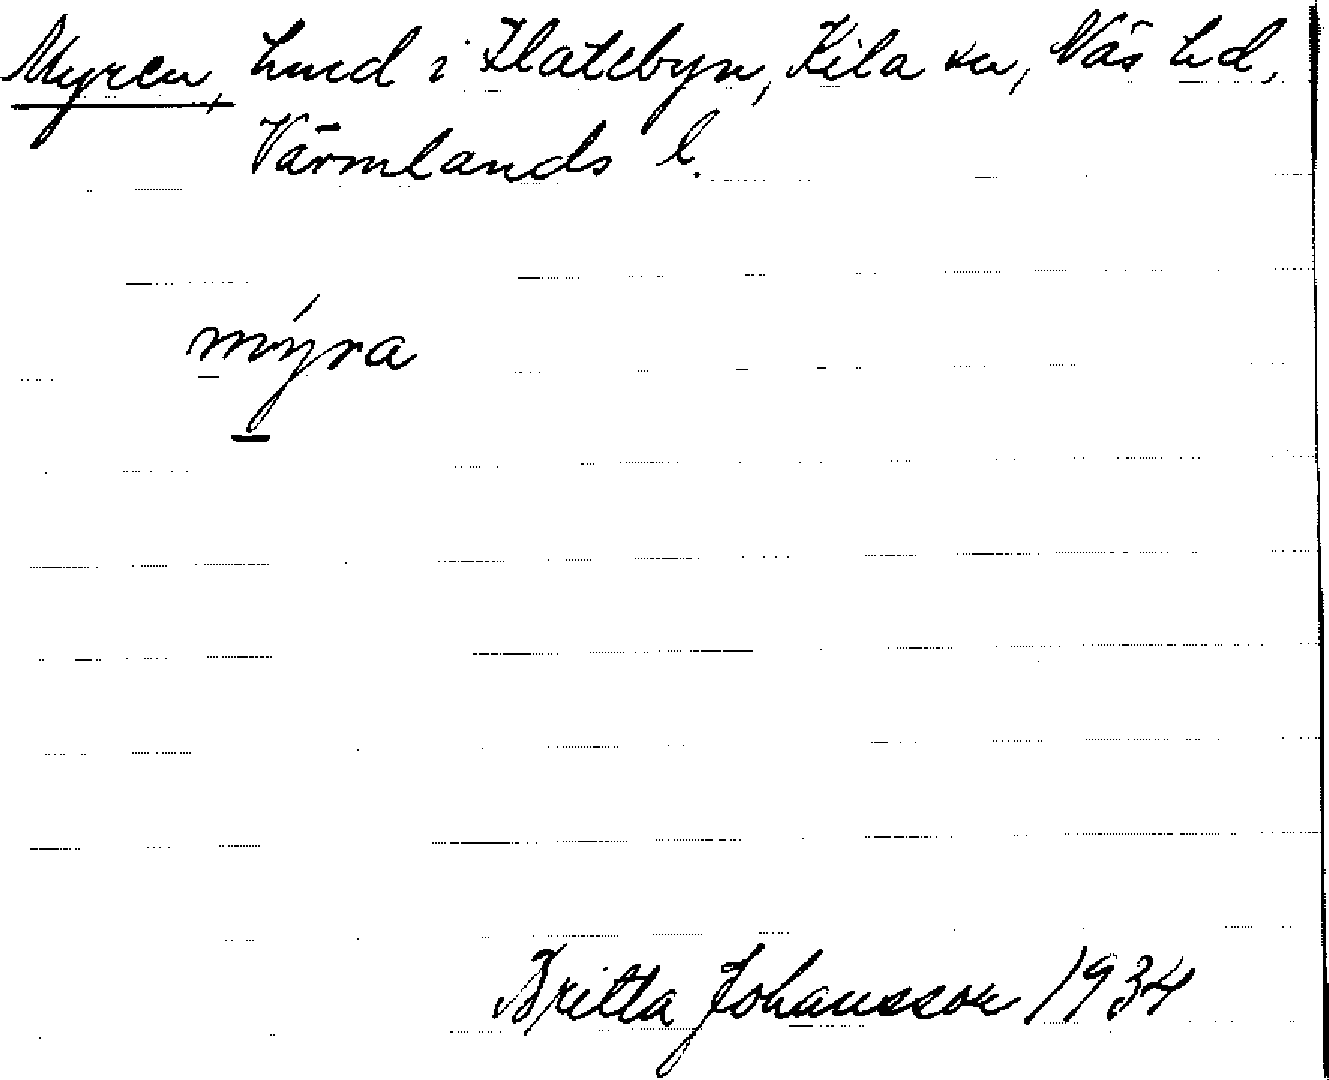 Myren, hmd i Flatebyn, Kila sn, Näs hd,
Värmlands l.
mýra
Britta Johansson 1934